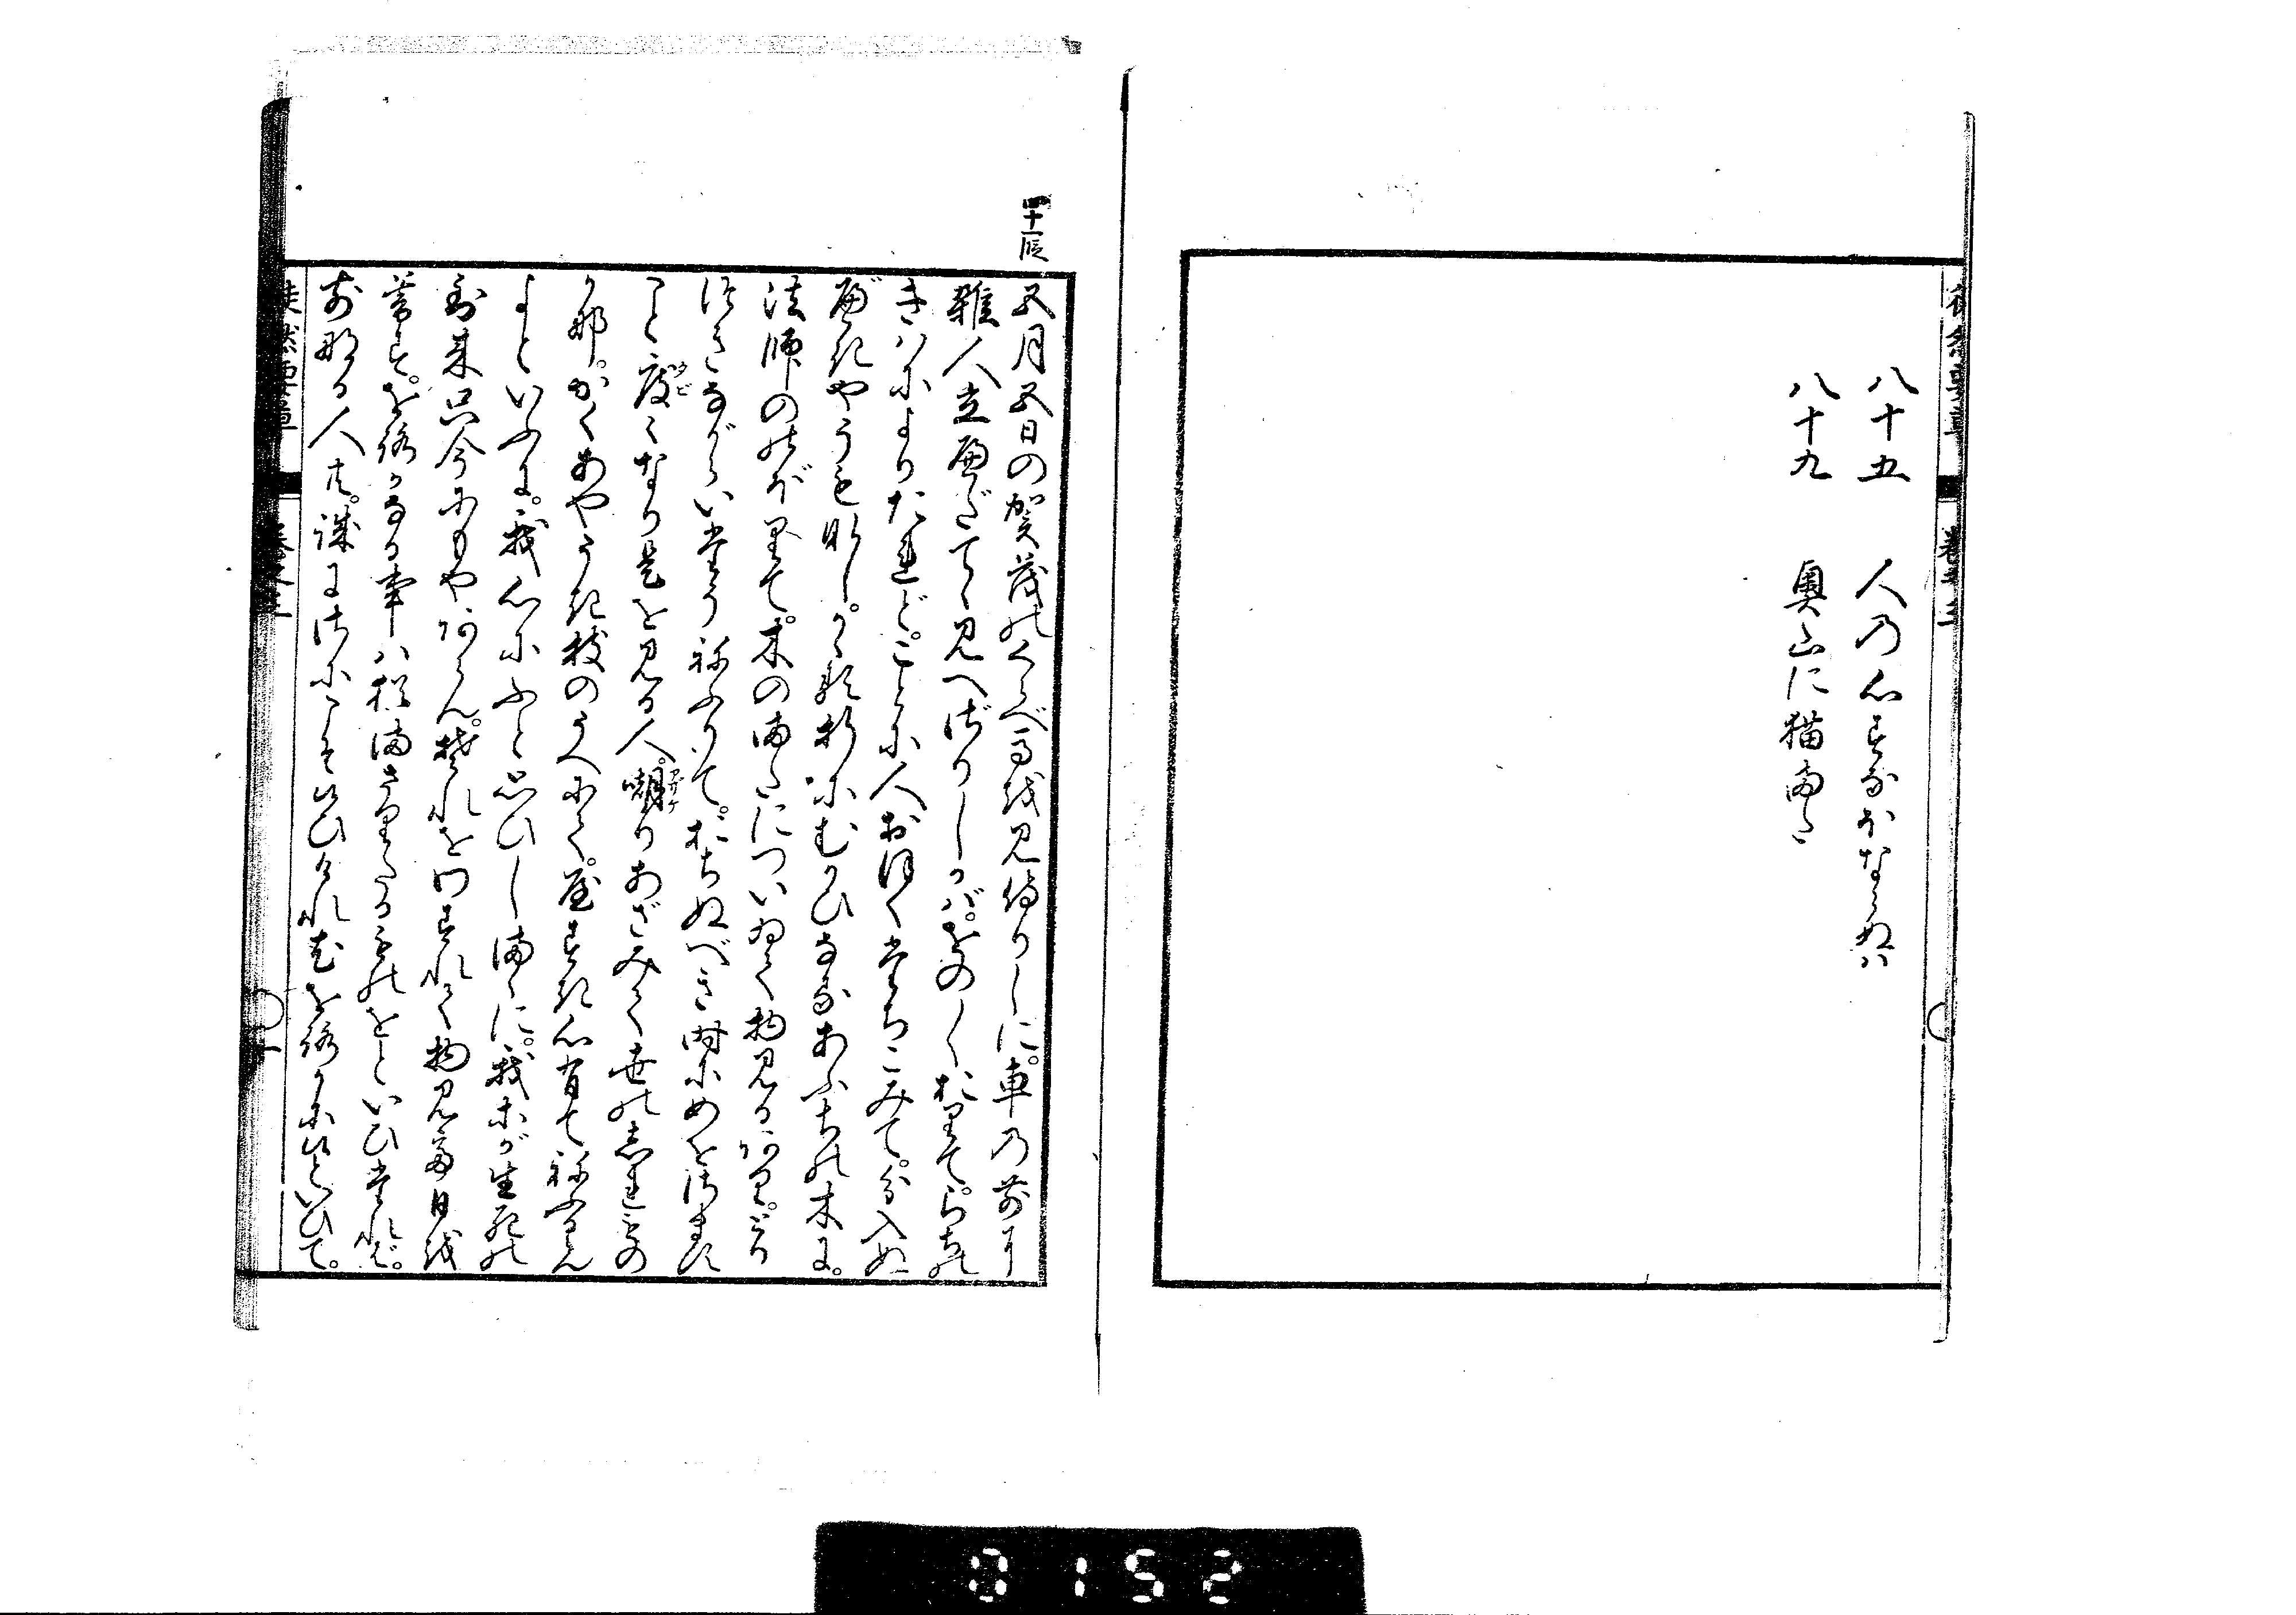 八十五　人乃心すなほならぬハ
八十九　奥山に猫また
四十一段
五月五日の賀茂のくらべ馬を見侍りしに。車乃前に
雑人立へだてゝ見へざりしかバ。をの〱おりて。らちの
きハによりたれど。ことに人おほくたちこみて。分入ぬ
べきやうもなし。かゝる折にむかひなるあふちの木に。
法師ののぼりて。木のまたについゐて物見るあり。とり
つきながらいたうねふりて。おちぬべき時にめをさます
こと度〻なり是を見る人。嘲りあざみて世のしれもの
かな。かくあやうき枝のうへにて。やすき心有てねふるらん
よといふに。我心にふと思ひしまゝに。我等が生死の
到来只今にもやあらん。それをわすれて物見て日を
暮す。をろかなる事ハ猶まさりたるものをといひたれバ。
前なる人共。誠にさにこそ候ひけれ尤をろかに候といひて。
徒然要草　巻之三